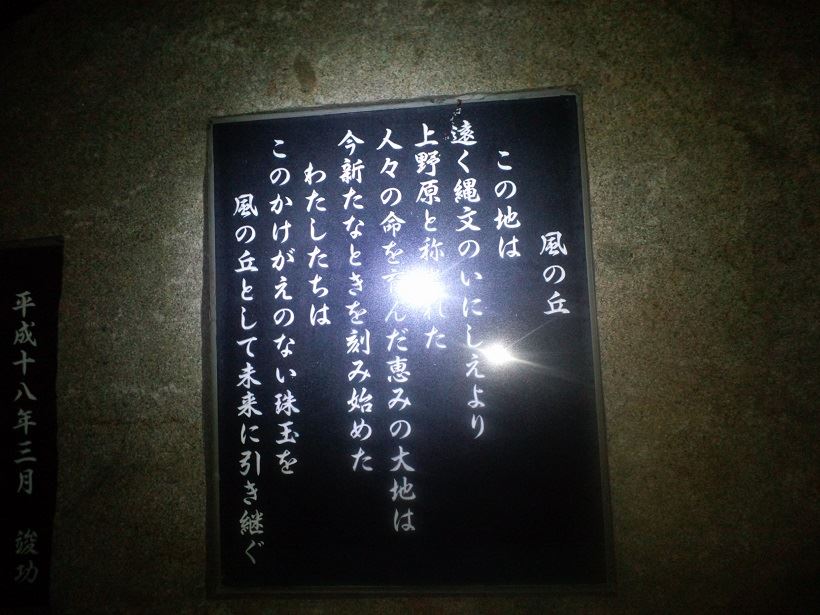 風の丘
この地は
遠く縄文のいにしえより
上野原と称 れた
人々の命を育んだ恵みの大地は
今新たなときを刻み始めた
わたしたちは
このかけがえのない珠玉を
風の丘として未来に引き継ぐ
平成十八年三月 竣功